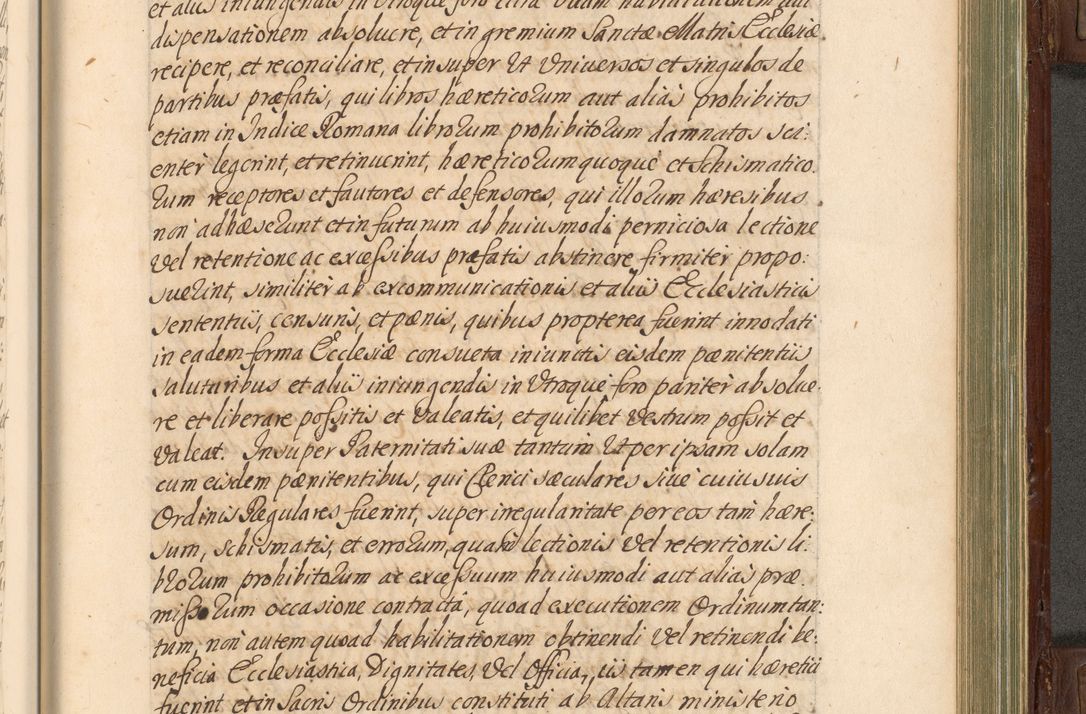 et aliis iniungendis in Utroque foro citra
dispensationem absoluere, et in gremium Sanctæ Matris Ecclesiæ
recipere, et reconciliare, et insuper Ut Universos et singulos de
partibus præfatis, qui libros hæreticorum aut alias prohibitos
etiam in Indice Romana librorum prohibitorum damnatos sci:
enter legerint, et retinuerint, hæreticorum quoque et Schismatico:
rum receptores et fautores et defensores, qui illorum hæresibus
non adhæserunt et in futurum ab huiusmodi perniciosa lectione
Vel retentione ac excæssibus præfatis abstinere firmiter propo:
suerint, similiter ab excommunicationis et aliis Ecclesiasticis
sententiis, censuris, et pænis, quibus propterea fuerint innodati
in eadem forma Ecclesiæ consueta iniunctis eisdem pænitentiis
salutaribus et aliis iniungendis in Utroque foro pariter absolue:
re et liberare possitis et Valeatis, et quilibet Vestrum possit et
Valeat. Insuper Paternitati suæ tantum Ut per ipsam solam
cum eisdem pænitentibus, qui Clerici sæculares sive cuiusuis
Ordinis Regulares fuerint, super irregularitate per eos tam hære:
sum, schismatis, et errorum, quam lectionis Vel retentionis li:
brorum prohibitorum ac excessuum huiusmodi aut alias præ:
missorum occasione contracta, quoad executionem Ordinum tan:
tum, non autem quoad habilitationem obtinendi Vel retinendi be:
neficia Ecclesiastica, Dignitates, Vel Officia, iis tamen qui hæretici
fuerint et in Sacris Ordinibus constituti ab Altaris ministerio